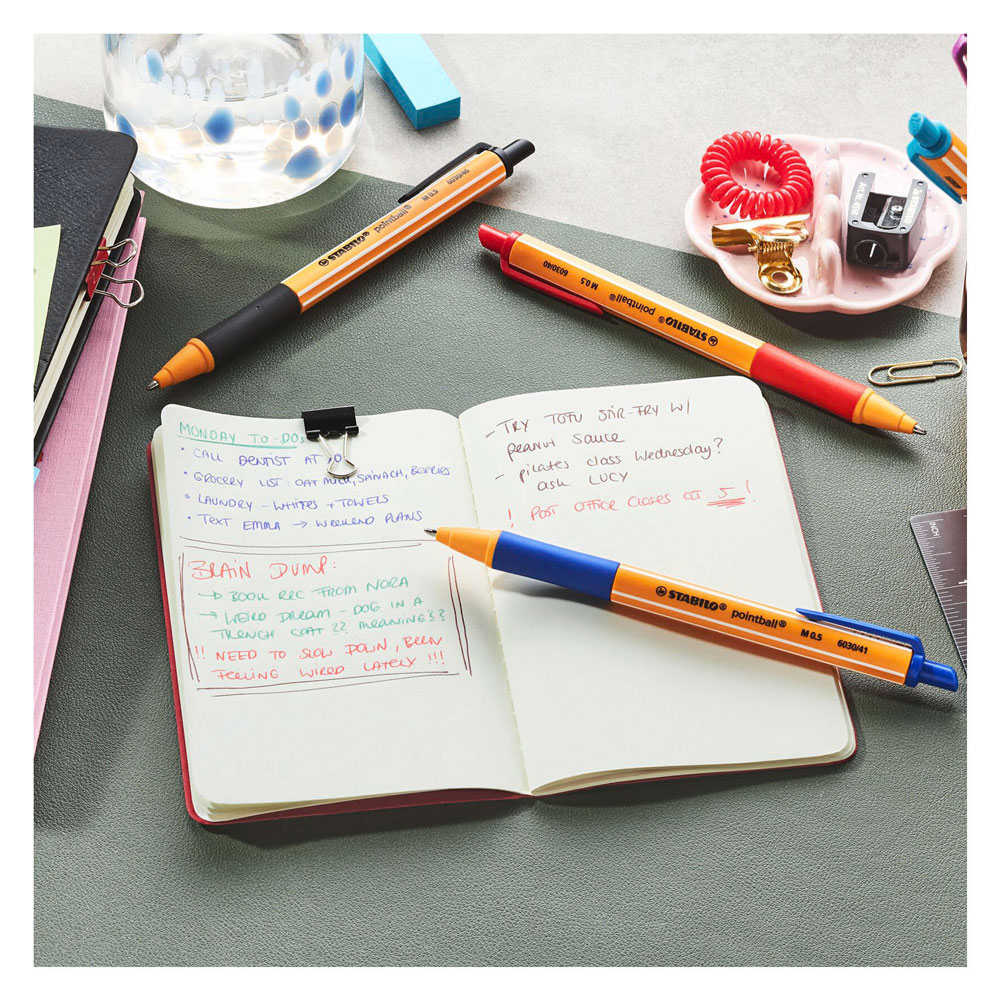 STABILO® pointball® M 0.5 6030/46
STABILO® pointball® M 0.5 6030/40
MONDAY TO-DOs
• CALL DENTIST AT
• GROCERY LIST: OAT MILK, SPINACH, BERRIES
• LAUNDRY - WHITES + TOWELS
• TEXT EMMA → WEEKEND PLANS
BRAIN DUMP:
→ BOOK REC FROM NORA
→ WEIRD DREAM - DOG IN A
TRENCH COAT ?? MEANING??
!! NEED TO SLOW DOWN, BEEN
FEELING WIRED LATELY !!!
- TRY TOFU STIR-FRY W/
PEANUT SAUCE
- PILATES CLASS WEDNESDAY?
ASK LUCY
! POST OFFICE CLOSES AT 5!
STABILO® pointball® M 0.5 6030/41
INCH